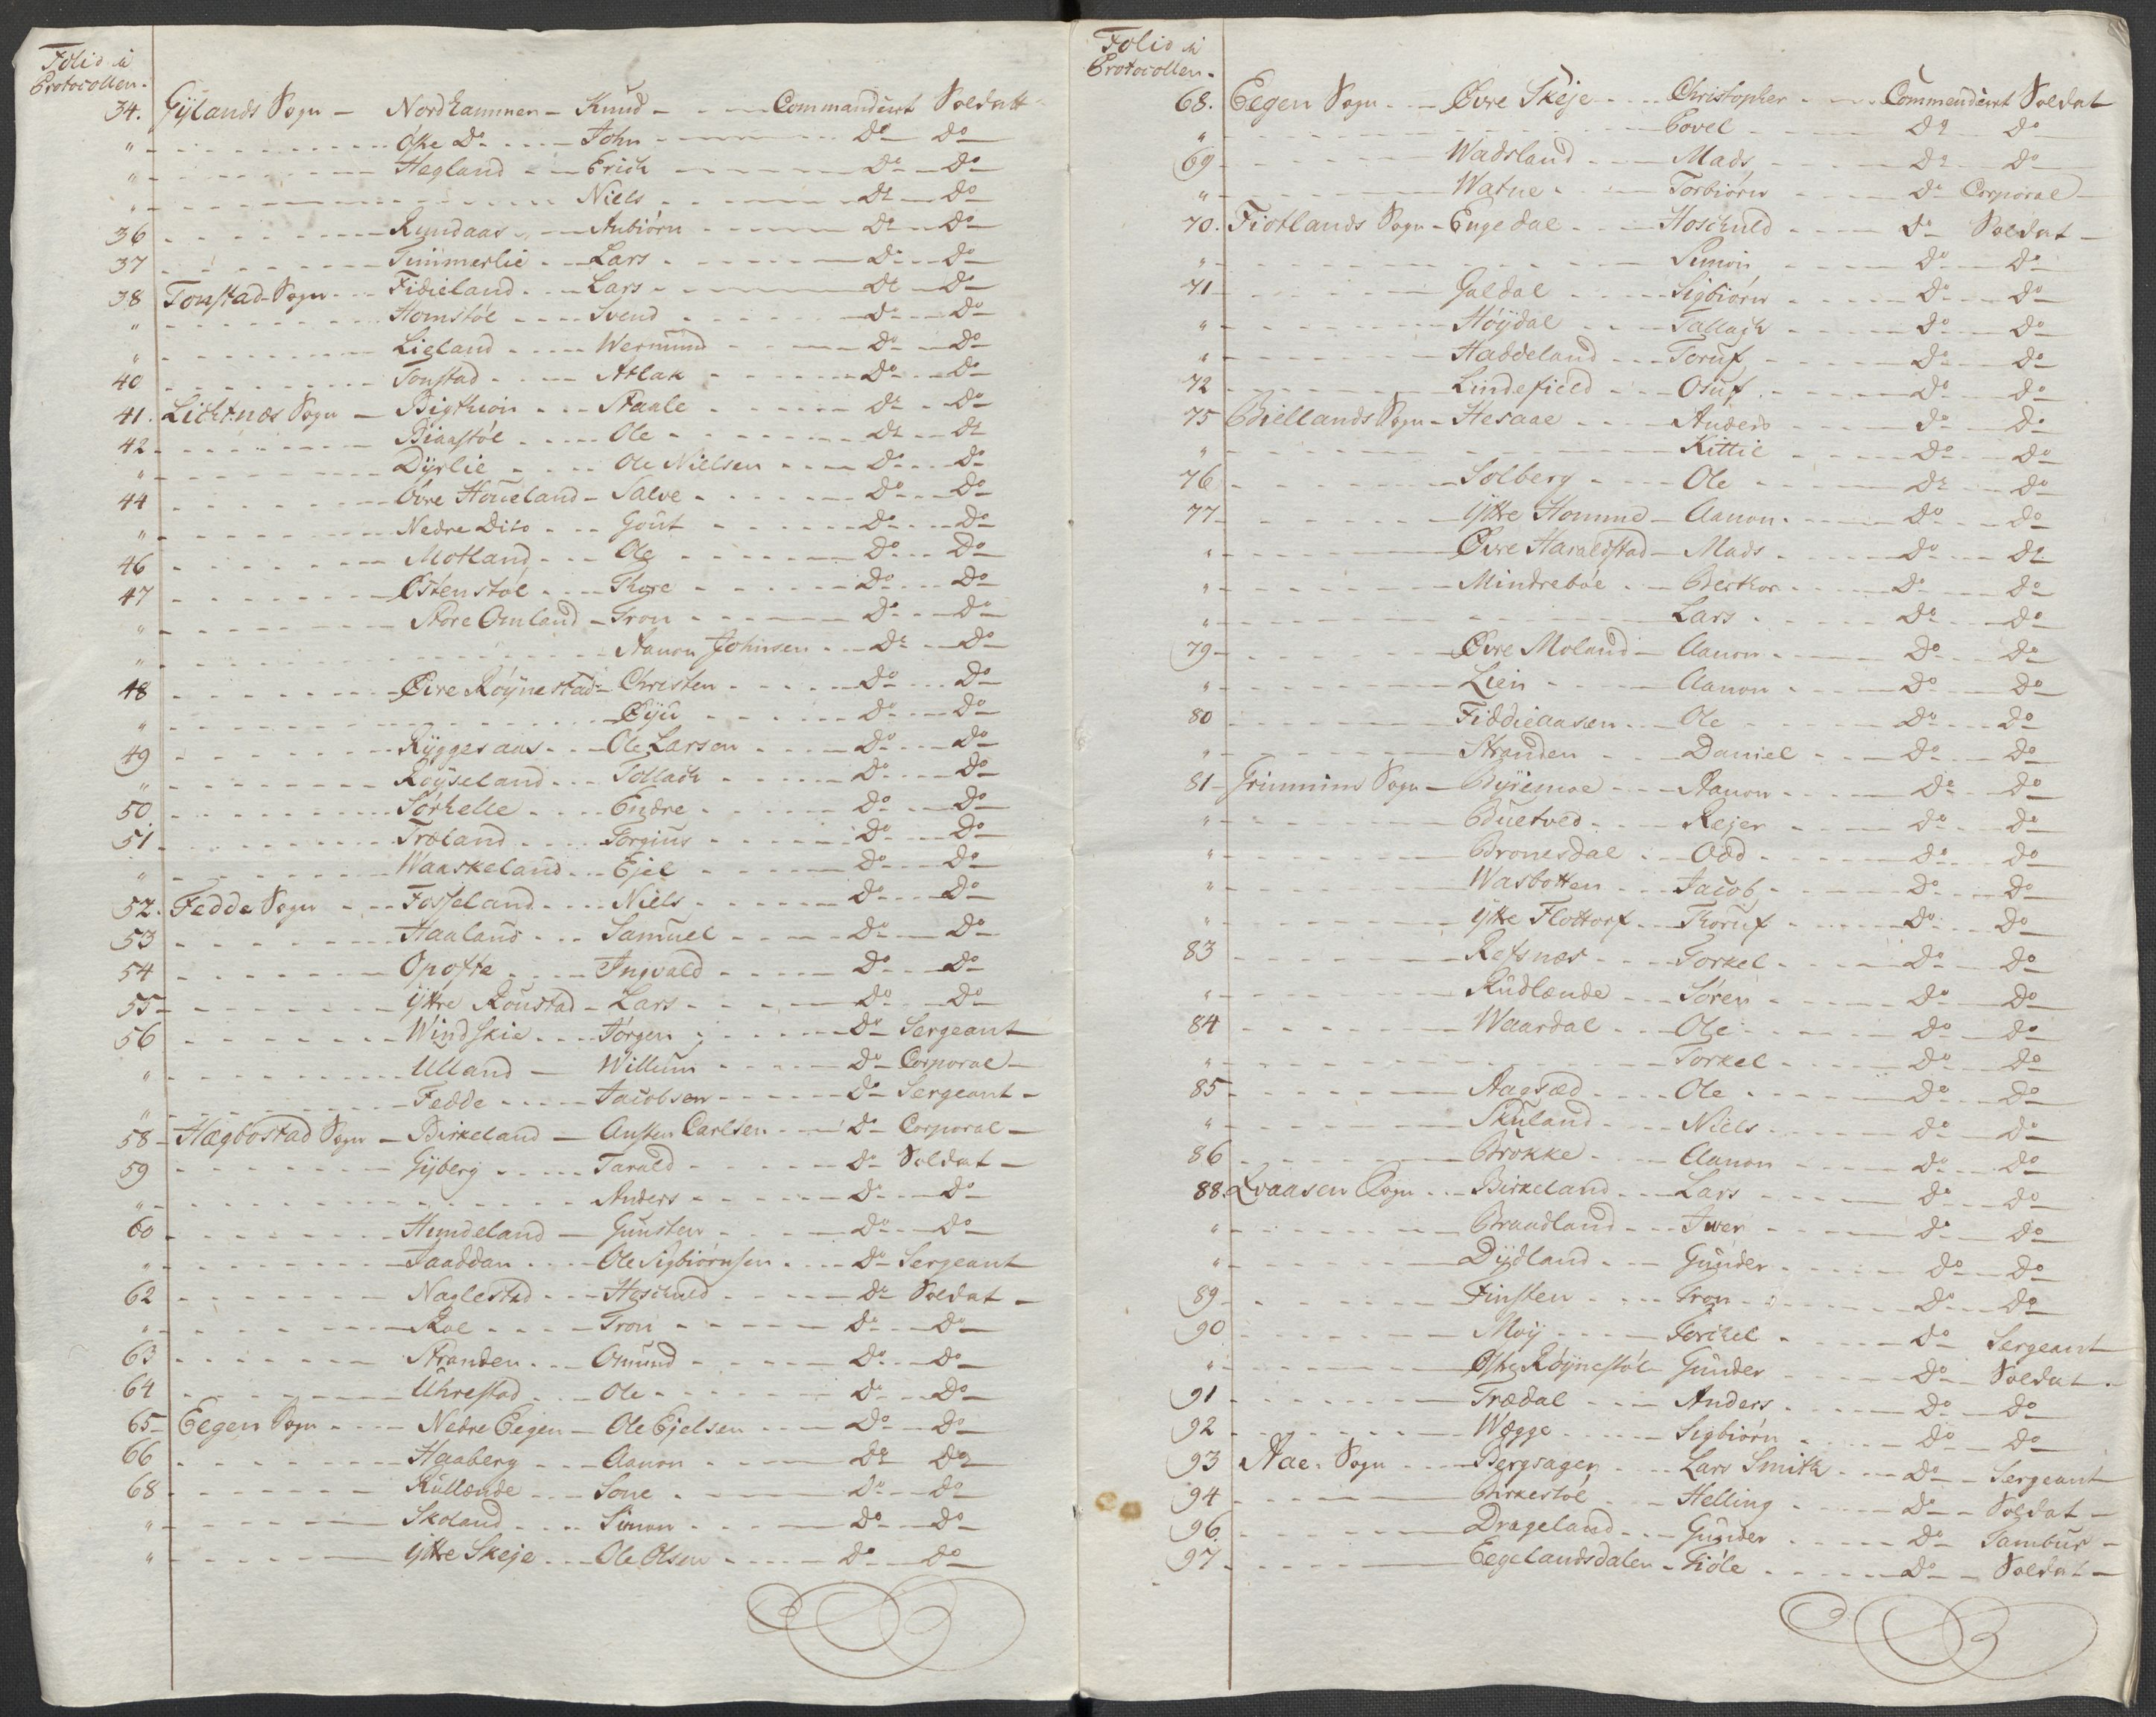 Folio i
Protocollen.
34. Gylands Sogn - Nordhammen - Knud - Commandeert Soldatt
" Øtre Do - John - Do Do
" Hegland - Erich - Do Do
" Niels - Do Do
36 Rundaas - Anbiørn - Do Do
37 Timmerlie - Lars - Do Do
38 Tonstad Sogn - Fidieland - Lars - Do Do
" Homstøl - Svend - Do Do
" Lieland - Wermund - Do Do
40 Tonstad - Atlak - Do Do
41. Lichtnæs Sogn - Bigtheoin - Staale - Do Do
42 Biaastøl - Ole - Do Do
" Dyrlie - Ole Nielsen - Do Do
44 Øvre Houeland - Salve - Do Do
" Nedre Dito - Gout - Do Do
46 Motland - Ole - Do Do
47 Østenstøl - Thore - Do Do
" Store Omland - Tron - Do Do
" Aanon Johnsen - Do Do
48 Øvre Røynestad - Christen - Do Do
" Øyu - Do Do
49 Ryggesaas - Ole Larsen - Do Do
" Røyseland - Tollach - Do Do
50. Sørhelle - Endre - Do Do
51 Træland - Torgius - Do Do
" Waaskeland - Ejel - Do Do
52. Fedde Sogn - Fosseland - Niels - Do Do
53 Haaland - Samuel - Do Do
54 Opofte - Ingvald - Do Do
55 Yttre Roustad - Lars - Do Do
56 Windskie - Jørgen - Do Sergeant
" Ulland - Willum - Do Corporal
" Fedde - Jacobsen - Do Sergeant
58 Hægbostad Sogn - Birkeland - Austen Carlsen - Do Corporal
59 Gyberg - Tarald - Do Soldat
" Anders - Do Do
60 Hundeland - Gunsten - Do Do
" Jaaddan - Ole Sigbiørnsen - Do Sergeant
62 Naglestad - Hoschuld - Do Soldat
" Roe - Tron - Do Do
63 Stranden - Omund - Do Do
64 Uhrestad - Ole - Do Do
65 Eegen Sogn - Nedre Eegen - Ole Ejelsen - Do Do
66 Haaberg - Aanon - Do Do
68 Rullende - Sone - Do Do
" Skoland - Simon - Do Do
" Yttre Skeje - Ole Olsen - Do Do
Folio i
Protocollen.
68. Eegen Sogn - Øvre Skeje - Christopher - Commendeert Soldat
" Povel - Do Do
69 Wadsland - Mads - Do Do
" Watne - Torbiørn - Do Corporal
70. Fiotlands Sogn - Engedal - Hoschuld - Do Soldat
" Simon - Do Do
71 Galdal - Sigbiørn - Do Do
" Høydal - Tallach - Do Do
" Haddeland - Toruf - Do Do
72 Lindefield - Osuf - Do Do
75 Biellands Sogn - Hesaae - Anders - Do Do
" Kittil - Do Do
76 Solberg - Ole - Do Do
77 Yttre Homme - Aanon - Do Do
" Øvre Haraldstad - Mads - Do Do
" Mindrebøe - Berthor - Do Do
" Lars - Do Do
79 Øvre Moland - Aanon - Do Do
" Lien - Aanon - Do Do
80 Fiddieaasen - Ole - Do Do
" Stranden - Daniel - Do Do
81 Grimnims Sogn - Byremoe - Aanon - Do Do
" Buetved - Rejer - Do Do
" Bronesdal - Odd - Do Do
" Wasbotten - Jacob - Do Do
" Yttre Flottorf - Thoruf - Do Do
83 Refsnæs - Torkel - Do Do
" Rudlænde - Søren - Do Do
84 Waardal - Ole - Do Do
" Torkel - Do Do
85 Aagsæd - Ole - Do Do
" Skuland - Niels - Do Do
86 Brokke - Aanon - Do Do
88. Qvaasen Sogn - Birkeland - Lars - Do Do
" Braadland - Iver - Do Do
" Dydland - Gunder - Do Do
89 Finsten - Tron - Do Do
90 Moy - Torchel - Do Sergeant
" Østre Røynestøl - Gunder - Do Soldat
91 Trædal - Anders - Do Do
92 Wægge - Sigbiørn - Do Do
93 Aae Sogn - Bergsagen - Lars Smith - Do Sergeant
94 Birkestøl - Helling - Do Soldat
96 Drageland - Gunder - Do Tambur
97 Eegelandsdalen - Fiøle - Do Soldat